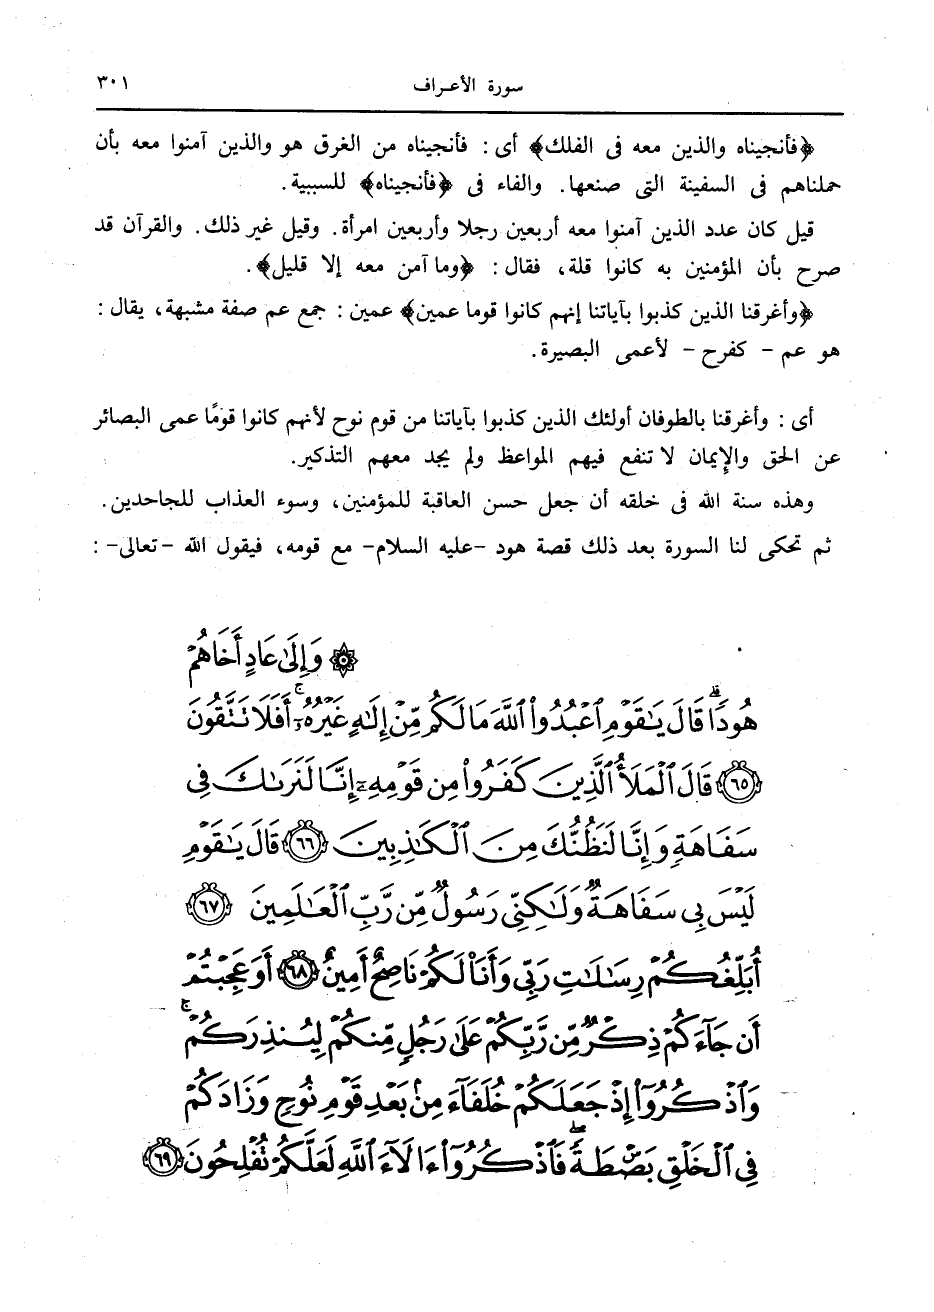 سورة الأعراف ٣٠١
﴿فأنجيناه والذين معه فى الفلك﴾ أى : فأنجيناه من الغرق هو والذين آمنوا معه بأن
حملناهم فى السفينة التى صنعها. والفاء فى ﴿فأنجيناه﴾ للسببية.
قيل كان عدد الذين آمنوا معه أربعين رجلا وأربعين امرأة. وقيل غير ذلك. والقرآن قد
صرح بأن المؤمنين به كانوا قلة، فقال : ﴿وما آمن معه إلا قليل﴾.
﴿وأغرقنا الذين كذبوا بآياتنا إنهم كانوا قوما عمين﴾ عمين : جمع عم صفة مشبهة، يقال :
هو عم - كفرح - لأعمى البصيرة.
أى : وأغرقنا بالطوفان أولئك الذين كذبوا بآياتنا من قوم نوح لأنهم كانوا قومًا عمى البصائر
عن الحق والإيمان لا تنفع فيهم المواعظ ولم يجد معهم التذكير.
وهذه سنة الله فى خلقه أن جعل حسن العاقبة للمؤمنين، وسوء العذاب للجاحدين.
ثم تحكى لنا السورة بعد ذلك قصة هود -عليه السلام- مع قومه، فيقول الله -تعالى- :
۞ وَإِلَىٰ عَادٍ أَخَاهُمْ
هُودًاۗ قَالَ يَٰقَوْمِ ٱعْبُدُوا۟ ٱللَّهَ مَا لَكُم مِّنْ إِلَٰهٍ غَيْرُهُۥٓۚ أَفَلَا تَتَّقُونَ
﴿٦٥﴾ قَالَ ٱلْمَلَأُ ٱلَّذِينَ كَفَرُوا۟ مِن قَوْمِهِۦٓ إِنَّا لَنَرَىٰكَ فِى
سَفَاهَةٍ وَإِنَّا لَنَظُنُّكَ مِنَ ٱلْكَٰذِبِينَ ﴿٦٦﴾ قَالَ يَٰقَوْمِ
لَيْسَ بِى سَفَاهَةٌ وَلَٰكِنِّى رَسُولٌ مِّن رَّبِّ ٱلْعَٰلَمِينَ ﴿٦٧﴾
أُبَلِّغُكُمْ رِسَٰلَٰتِ رَبِّى وَأَنَا۠ لَكُمْ نَاصِحٌ أَمِينٌ ﴿٦٨﴾ أَوَعَجِبْتُمْ
أَن جَآءَكُمْ ذِكْرٌ مِّن رَّبِّكُمْ عَلَىٰ رَجُلٍ مِّنكُمْ لِيُنذِرَكُمْۚ
وَٱذْكُرُوٓا۟ إِذْ جَعَلَكُمْ خُلَفَآءَ مِنۢ بَعْدِ قَوْمِ نُوحٍ وَزَادَكُمْ
فِى ٱلْخَلْقِ بَصْۜطَةًۖ فَٱذْكُرُوٓا۟ ءَالَآءَ ٱللَّهِ لَعَلَّكُمْ تُفْلِحُونَ ﴿٦٩﴾